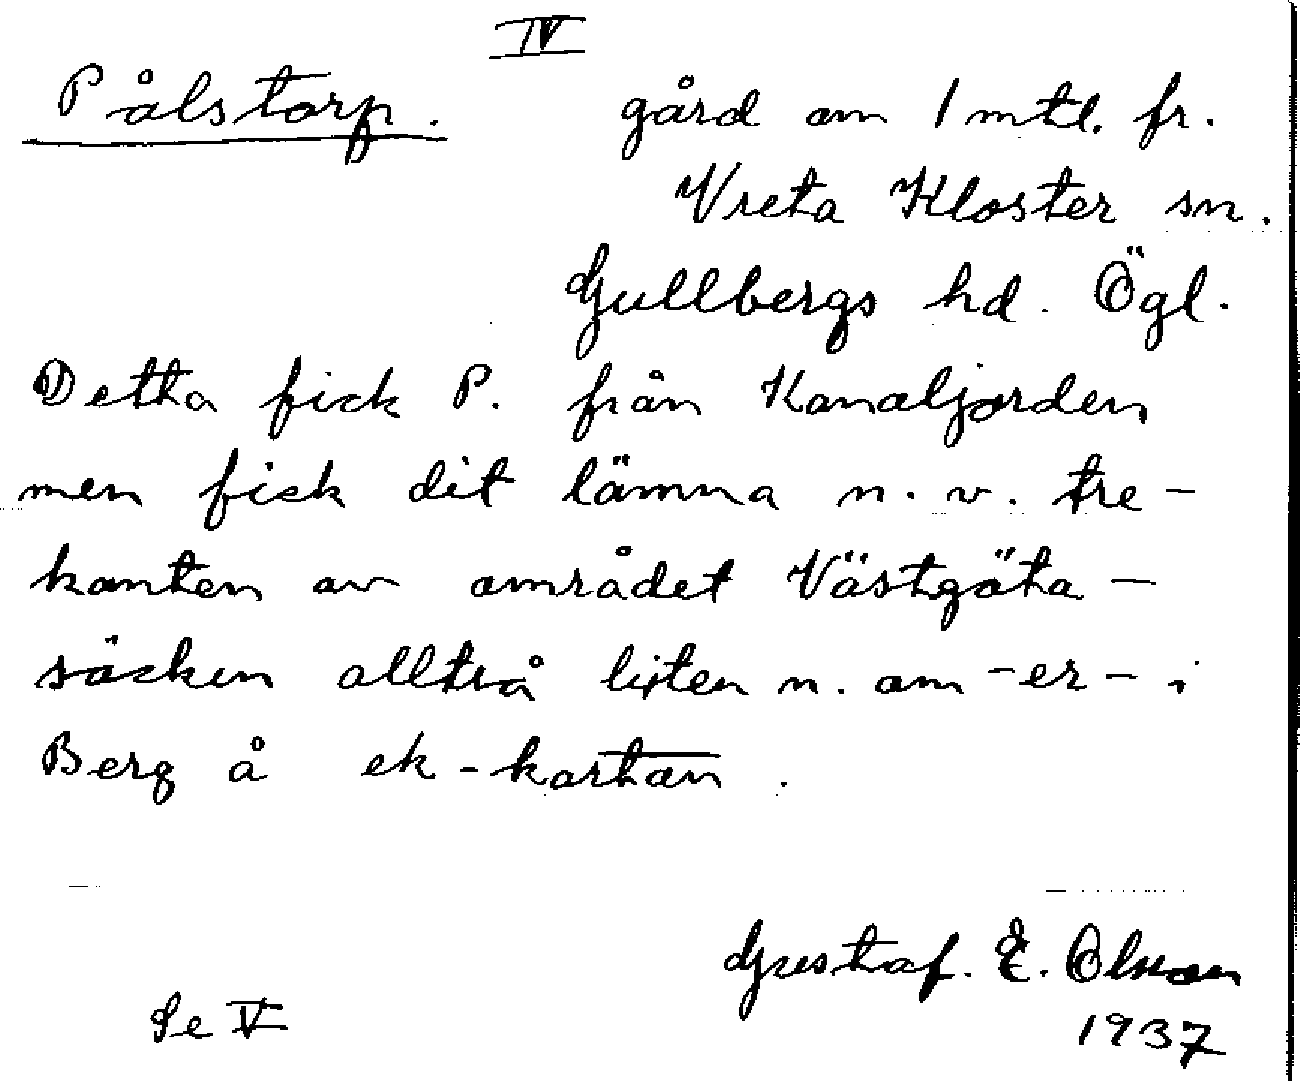 IV
Pålstorp. gård om 1 mtl. fr.
Vreta Kloster sn.
Gullbergs hd. Ögl.
Detta fick P. från Kanaljorden
men fick dit lämna n. v. tre-
kanten av området Västgöta-
säcken alltså liten n. om -er- i
Berg å ek-kartan.
Gustaf. E. Olsson
1937
Se V